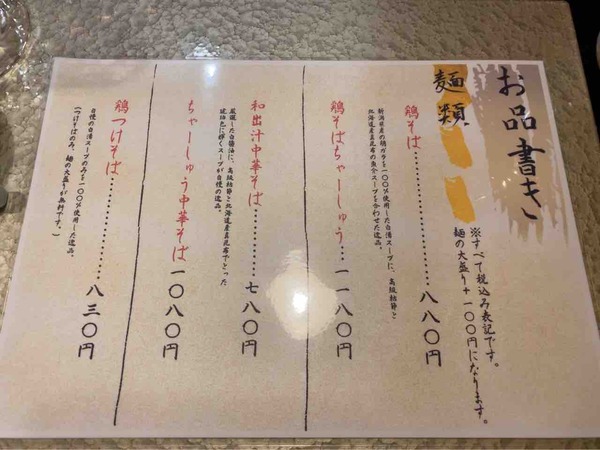 お品書き
※すべて税込み表記です。
麺の大盛り+一〇〇円になります。
麺類
鶏そば…………八八〇円
新潟県産の鶏ガラを一〇〇%使用した白湯スープに、高級枯節と
北海道産真昆布の魚介スープを合わせた逸品。
鶏そばちゃーしゅう…一一八〇円
和出汁中華そば…………七八〇円
厳選した白醤油に、高級枯節と北海道産真昆布でとった
琥珀色に輝くスープが自慢の逸品。
ちゃーしゅう中華そば 一〇八〇円
鶏つけそば…………八三〇円
自慢の白湯スープのみを一〇〇%使用した逸品。
(つけそばのみ、麺の大盛りが無料です。)